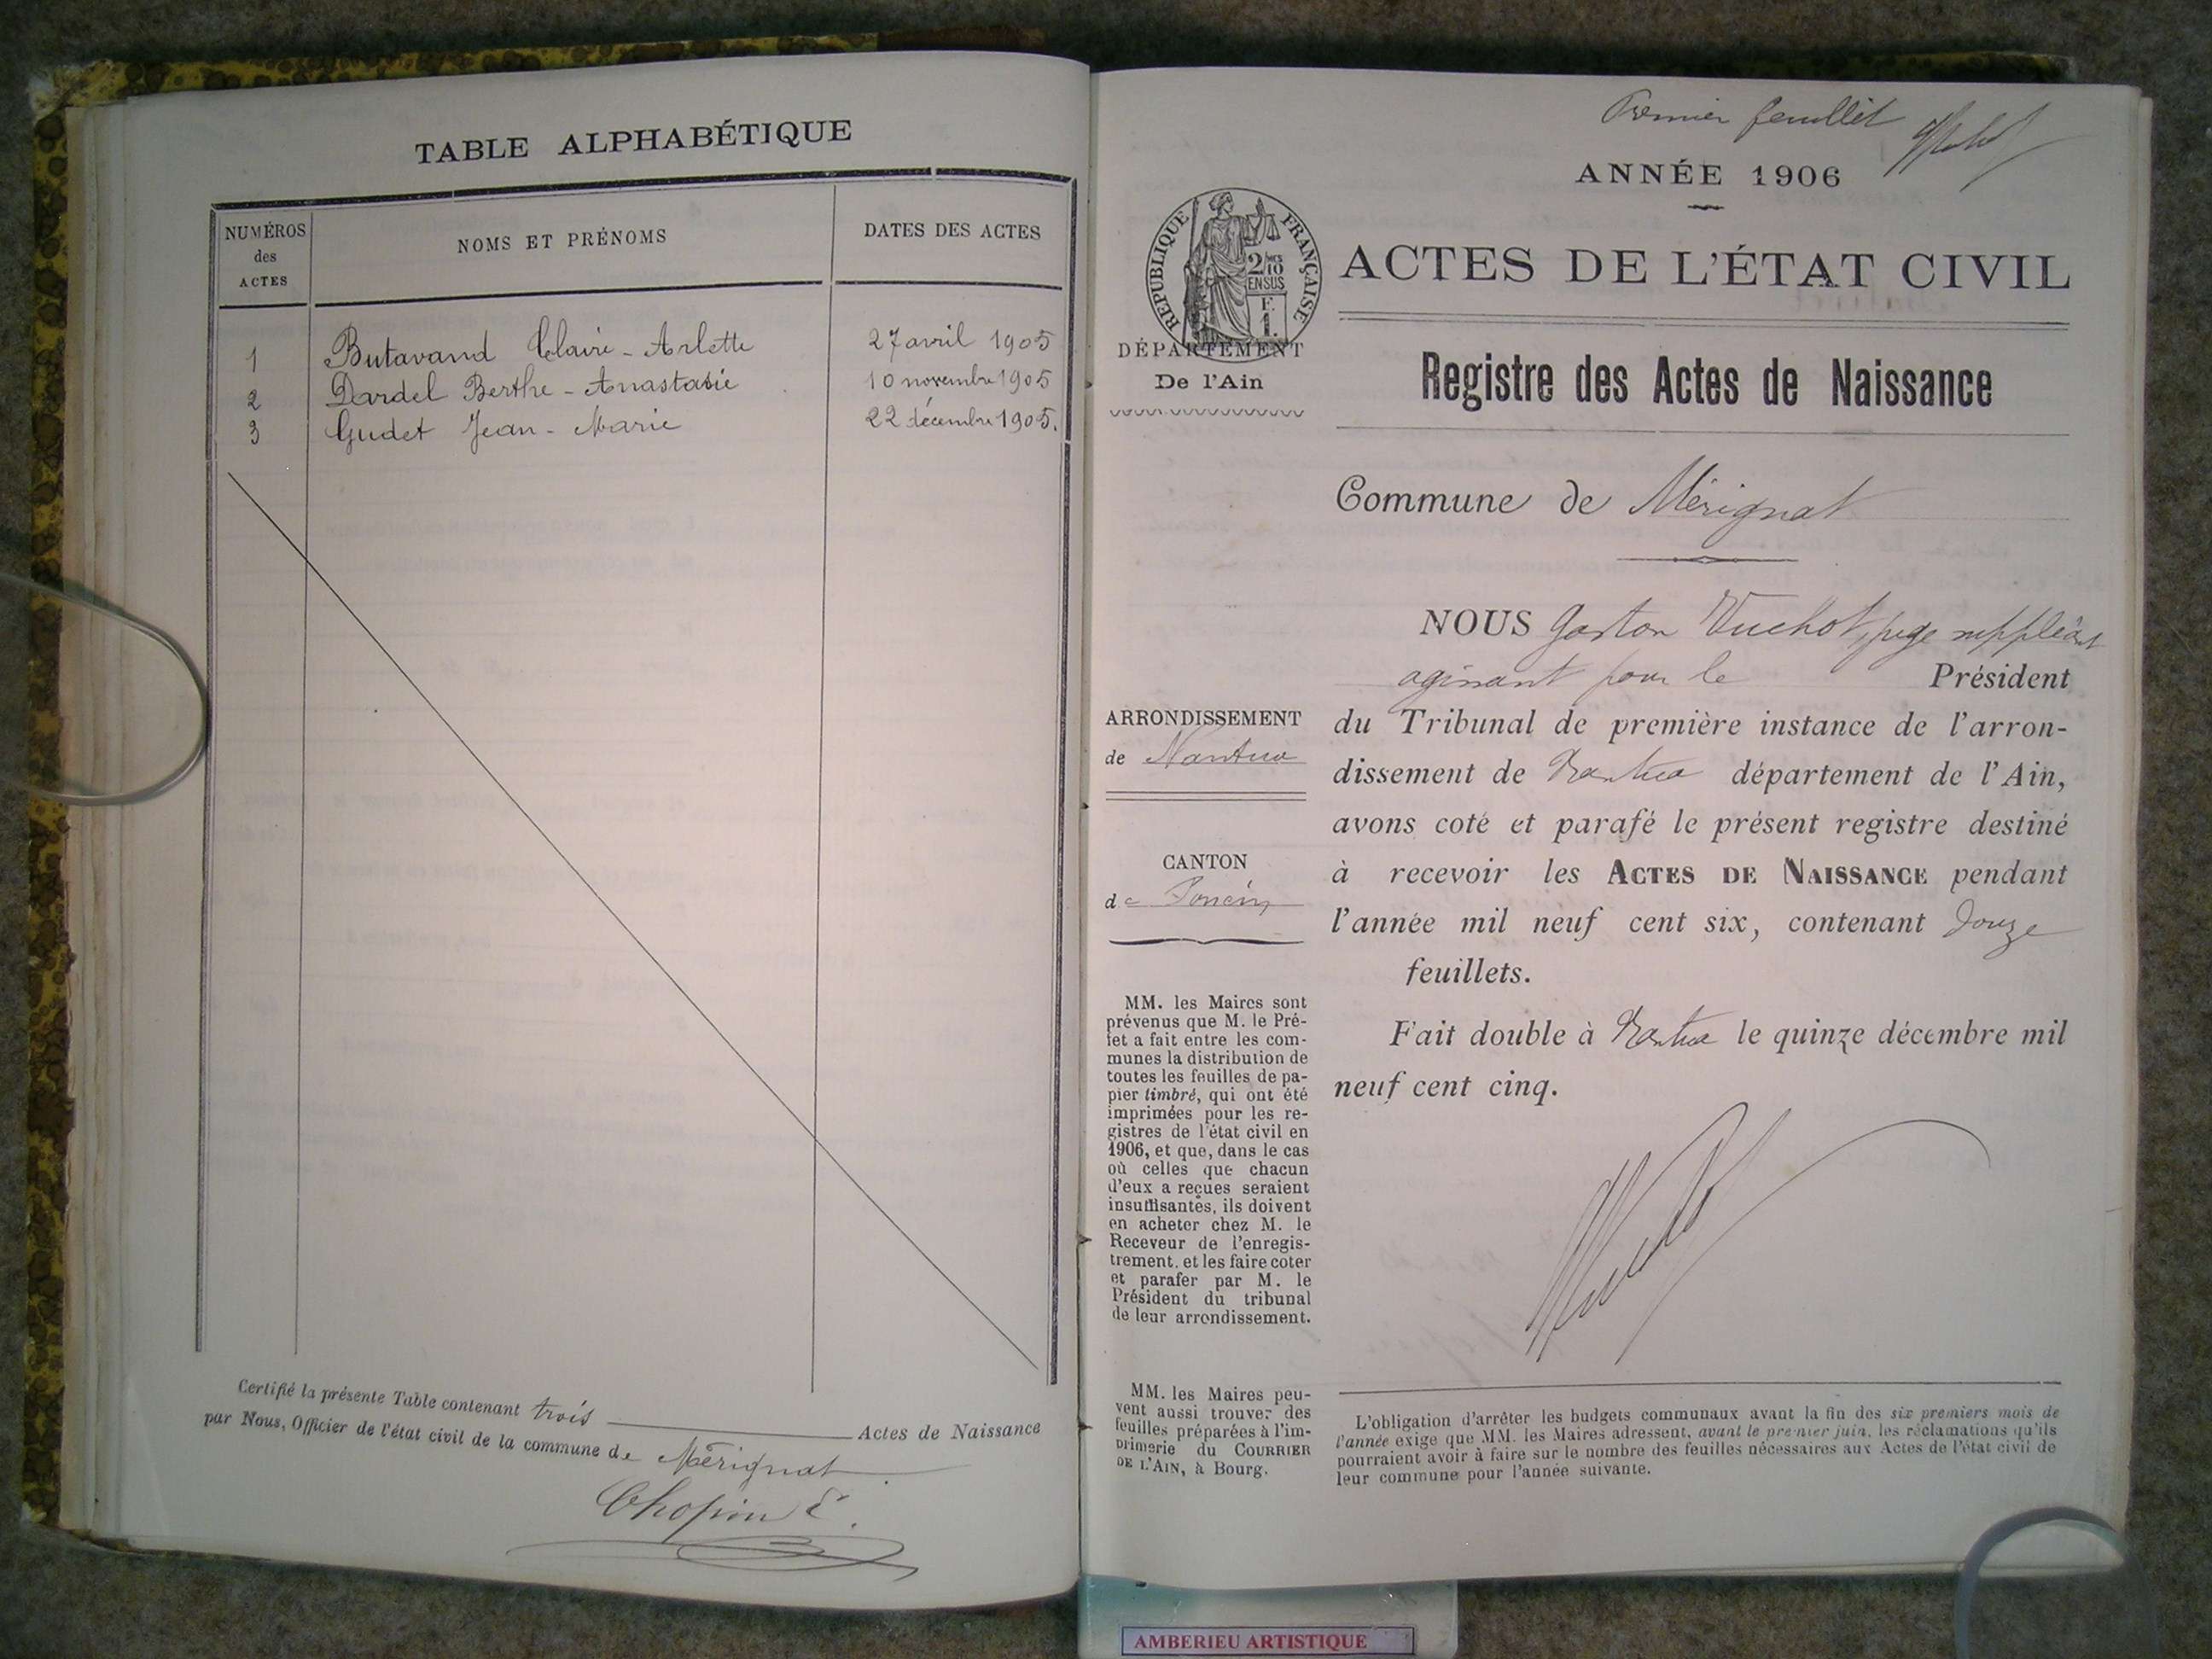 TABLE ALPHABÉTIQUE
NUMÉROS des ACTES
NOMS ET PRÉNOMS
DATES DES ACTES
1 Butavand Claire-Arlette 27 avril 1905
2 Dardel Berthe-Anastasie 10 novembre 1905
3 Gudet Jean-Marie 22 décembre 1905.
Certifié la présente Table contenant trois Actes de Naissance
par Nous, Officier de l'état civil de la commune de Mérignat
Chopin
Premier feuillet
ANNÉE 1906
RÉPUBLIQUE FRANÇAISE
2/10 EN SUS
F. 1.
DÉPARTEMENT
De l'Ain
ACTES DE L'ÉTAT CIVIL
Registre des Actes de Naissance
Commune de Mérignat
NOUS Gaston Vuchot, juge suppléant
agissant pour le Président
du Tribunal de première instance de l'arron-
dissement de Nantua département de l'Ain,
avons coté et parafé le présent registre destiné
à recevoir les ACTES DE NAISSANCE pendant
l'année mil neuf cent six, contenant douze
feuillets.
Fait double à Nantua le quinze décembre mil
neuf cent cinq.
ARRONDISSEMENT
de Nantua
CANTON
de Poncin
MM. les Maires sont
prévenus que M. le Pré-
fet a fait entre les com-
munes la distribution de
toutes les feuilles de pa-
pier timbré, qui ont été
imprimées pour les re-
gistres de l'état civil en
1906, et que, dans le cas
où celles que chacun
d'eux a reçues seraient
insuffisantes, ils doivent
en acheter chez M. le
Receveur de l'enregis-
trement. et les faire coter
et parafer par M. le
Président du tribunal
de leur arrondissement.
MM. les Maires peu-
vent aussi trouver des
feuilles préparées à l'im-
primerie du COURRIER
DE L'AIN, à Bourg.
L'obligation d'arrêter les budgets communaux avant la fin des six premiers mois de
l'année exige que MM. les Maires adressent, avant le premier juin, les réclamations qu'ils
pourraient avoir à faire sur le nombre des feuilles nécessaires aux Actes de l'état civil de
leur commune pour l'année suivante.
AMBERIEU ARTISTIQUE